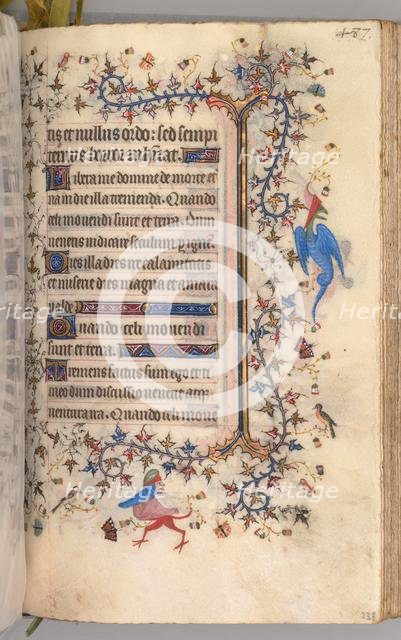 487
tis et nullus ordo: sed sempi
ternus horror inhabitat.
Libera me domine de morte et
na in die illa tremenda. Quando
celi movendi sunt et terra. Dum
veneris iudicare seculum p igne.
Dies illa dies ire calamitatis
et miserie dies magna et amara
valde
Quando celi movendi
sunt et terra.
Tremens factus sum ego et ti
meo dum discussio venerit atqz
ventura ira. Quando celi move
Heritage
Heritage
Heritage
Heritage
Heritage
Heritage
238